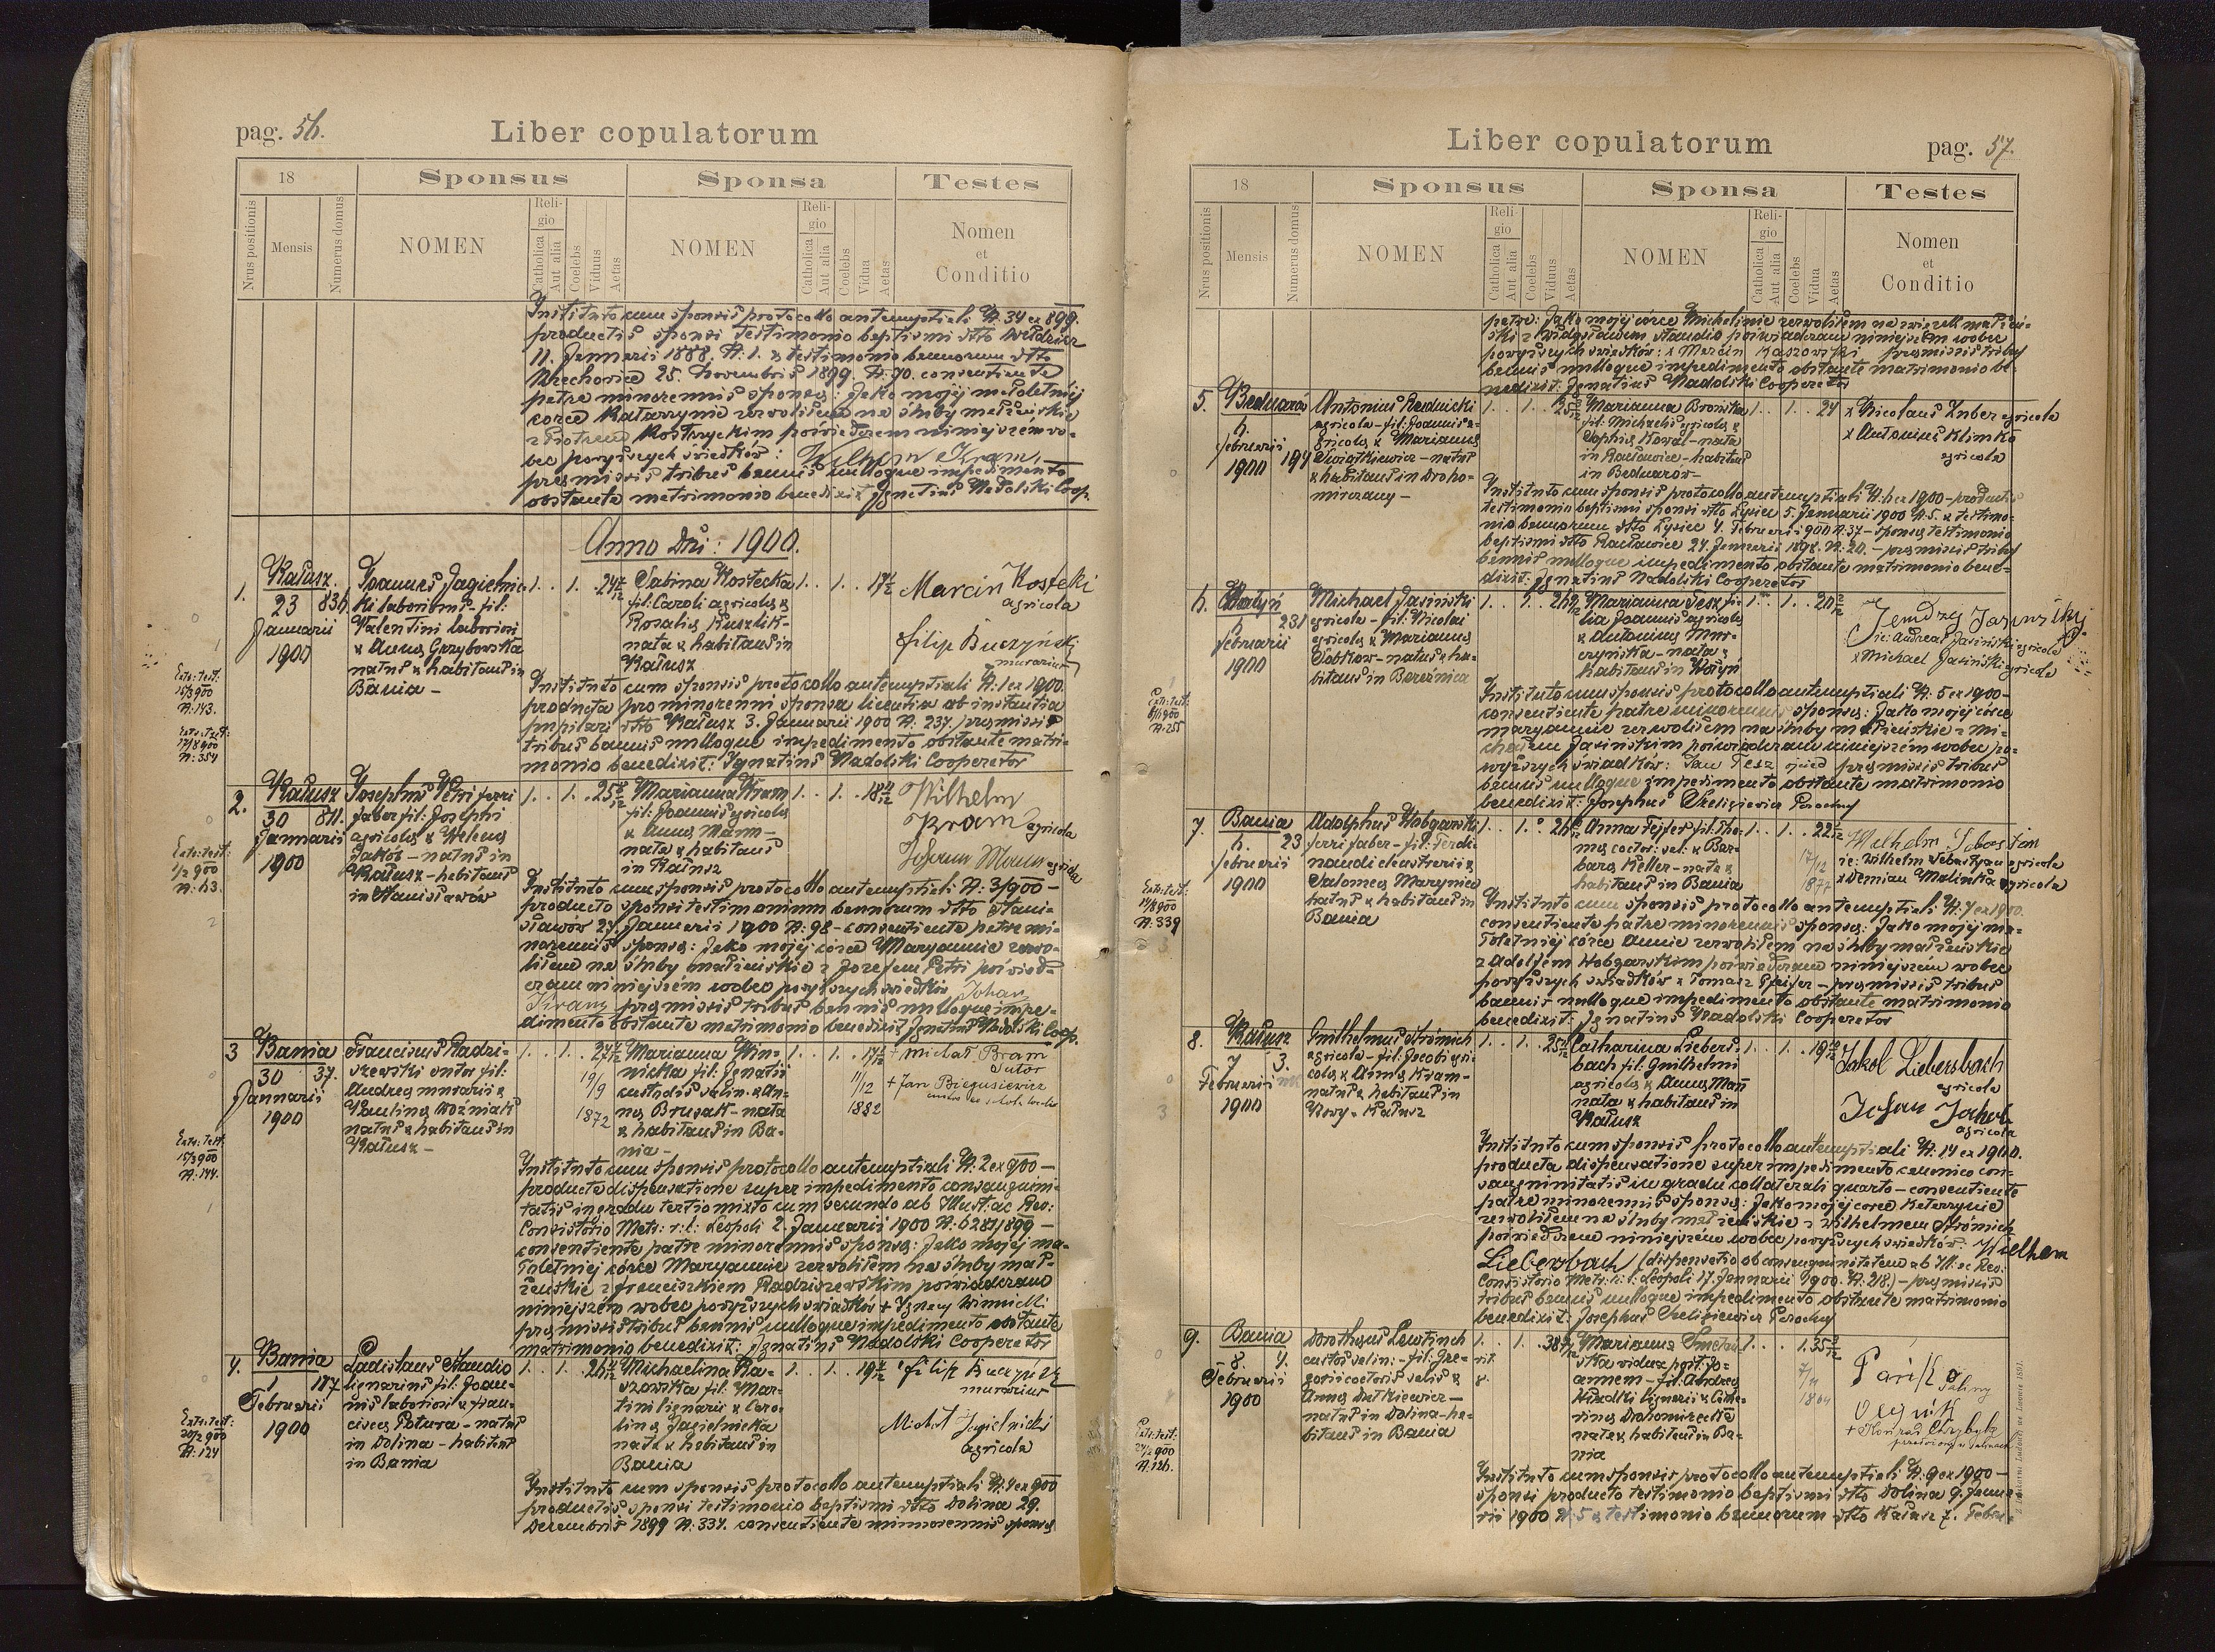 pag. 56.
Liber copulatorum
18
Sponsus
Sponsa
Testes
Nrus positionis
Mensis
Numerus domus
NOMEN
Religio
Catholica
Aut alia
Coelebs
Viduus
Aetas
NOMEN
Religio
Catholica
Aut alia
Coelebs
Vidua
Aetas
Nomen
et
Conditio
Instituto cum sponsis protocollo antenuptiali N. 34 ex 899.
productis sponsi testimonio baptismi dtto
11. Januarii 1888. N. 1. & testimonio bannorum dtto
25. Novembris 1899 N. 90. consentiente
patre minorennis sponsæ: Jako mojéj małoletniéj
córce Katarzynie zezwoliłem na śluby małżeńskie
z Piotrem Kostryckim poświadczam niniejszém wo-
bec powyższych świadków: Wilhelm Kram.
præmissis tribus bannis nulloque impedimento
obstante matrimonio benedixit Ignatius Nadolski Coop.
Anno Dni: 1900.
1.
Kałusz.
23 836
Januarii
1900
Joannes Jagielnic-
ki laboriosus - fil:
Valentini laboriosi
& Annæ Grzybowska
natus & habitans in
Bania -
1. . 1. 24
Sabina Kostecka
fil: Caroli agricolæ &
Rosaliæ Kuszlik -
nata & habitans in
Kałusz
1. . 1. . 17
Marcin Kostecki
agricola
Filip Buczyński
murarius
Extr: test:
15/3 900
N. 143.
Extr: test:
17/8 900
N. 354
Instituto cum sponsis protocollo antenuptiali N. 1 ex 1900.
producta pro minorenni sponsa licentia ab instantia
pupilari dtto Kałusz 3. Januarii 1900 N. 237. præmissis
tribus bannis nulloque impedimento obstante matri-
monio benedixit: Ignatius Nadolski Cooperator
2.
Kałusz
30 811.
Januarii
1900
Josephus Petri ferri
faber fil: Josephi
agricolæ & Helenæ
Jakób - natus in
Kałusz - habitans
in Stanisławów
1. . 1. . 25
Marianna Kram
fil: Joannis agricolæ
& Annæ Mann -
nata & habitans
in Kałusz
1. . 1. . 18
Wilhelm
Kram agricola
Johann Mann agricola
Extr: test:
1/2 900
N. 63.
Instituto cum sponsis protocollo antenuptiali N. 3/900 -
producto sponsi testimonium bannorum dtto Stani-
sławów 27. Januarii 1900 N. 98 - consentiente patre mi-
norennis sponsæ: Jako mojéj córce Maryannie zezwo-
liłem na śluby małżeńskie z Józefem Petri poświad-
czam niniejszém wobec powyższych świadków Johan
Kram præmissis tribus bannis nulloque impe-
dimento obstante matrimonio benedixit Ignatius Nadolski Coop.
3
Bania
30 37.
Januarii
1900
Franciscus Radzi-
szewski sutor fil:
Andreæ murarii &
Paulinæ Woźniak
natus & habitans in
Kałusz -
1. . 1. . 27
19/9
1872
Marianna Win-
nicka fil: Ignatii
custodis salin: & An-
næ Brusak - nata
& habitans in Ba-
nia -
1. . 1. . 17
11/12
1882
+ Michał Bram
Sutor
+ Jan Biegusiewicz
Extr: test:
15/3 900
N. 144.
Instituto cum sponsis protocollo antenuptiali N. 2 ex 900 -
producta dispensatione super impedimento consanguini-
tatis in gradu tertio mixto cum secundo ab Illust: ac Rev:
Consistorio Metr: r: l: Leopoli 2. Januarii 1900 N. 6287/899 -
consentiente patre minorennis sponsæ: Jako mojéj ma-
łoletniej córce Maryannie zezwoliłem na śluby mał-
żeńskie z Franciszkiem Radziszewskim poświadczam
niniejszém wobec powyższych świadków + Ignacy Winnicki
præmissis tribus bannis nulloque impedimento obstante
matrimonio benedixit: Ignatius Nadolski Cooperator
4.
Bania
1 187
Februarii
1900
Ladislaus Staudio
lignarius fil: Joan-
nis laboriosi & Fran-
ciscæ Patura - natus
in Dolina - habitans
in Bania
1. . 1. . 26
Michaelina Ka-
szowska fil: Mar-
tini lignarii & Caro-
linæ Jagielnicka
nata & habitans in
Bania
1. . 1. . 19
Filip Buczyński
murarius
Michał Jagielnicki
agricola
Extr: test:
20/2 900
N. 124
Instituto cum sponsis protocollo antenuptiali N. 4 ex 900
productis sponsi testimonio baptismi dtto Dolina 29.
Decembris 1899 N. 334. consentiente minorennis sponsæ
Liber copulatorum
pag. 57.
18
Sponsus
Sponsa
Testes
Nrus positionis
Mensis
Numerus domus
NOMEN
Religio
Catholica
Aut alia
Coelebs
Viduus
Aetas
NOMEN
Religio
Catholica
Aut alia
Coelebs
Vidua
Aetas
Nomen
et
Conditio
patre: Jako mojéj córce Michalinie zezwoliłem na związek małżeń-
ski z Władysławem Staudio poświadczam niniejszém wobec
powyższych świadków: x Marcin Kaszowski præmissis tribus
bannis nulloque impedimento obstante matrimonio be-
nedixit: Ignatius Nadolski Cooperator
5.
Bednarów
6.
Februarii
1900 194
Antonius Rudnicki
agricola - fil: Joannis a-
gricolæ & Mariannæ
Świątkiewicz - natus
& habitans in Droho-
mirczany -
1. . 1. . 25
Marianna Brońska
fil: Michaelis agricolæ &
Sophiæ Kowal - nata
in Racławice - habitans
in Bednarów -
1. . 1. . 24
x Nicolaus Zuber agricola
x Antonius Klimko
agricola
Instituto cum sponsis protocollo antenuptiali N. 6 ex 1900 - productis
testimonio baptismi sponsi dtto Łysiec 5. Januarii 1900 N. 5. & testimo-
nio bannorum dtto Łysiec 4. Februarii 900 N. 37 - sponsæ testimonio
baptismi dtto Racławice 24. Januarii 1898. N. 20. - præmissis tribus
bannis nulloque impedimento obstante matrimonio bene-
dixit: Ignatius Nadolski Cooperator
6.
6. 231
Februarii
1900
Michael Jasiński
agricola - fil: Nicolai
agricolæ & Mariannæ
Dobkow - natus & ha-
bitans in Bereżnica
1. . 1. . 26
Marianna Tesz fi-
lia Joannis agricolæ
& Antoninæ Mur-
czyńska - nata &
habitans in Wołyń
1. . 1. . 20
Jendrzy Jasinzki
ie: Andreas Jasiński agricola
x Michael Jasiński agricola
Extr: test:
N. 255
Instituto cum sponsis protocollo antenuptiali N. 5 ex 1900 -
consentiente patre minorennis sponsæ: Jako mojéj córce
Maryannie zezwoliłem na śluby małżeńskie z Mi-
chałem Jasińskim poświadczam niniejszém wobec po-
wyższych świadków: Jan Tesz ojciec præmissis tribus
bannis nulloque impedimento obstante matrimonio
benedixit: Josephus Szeligiewicz Parochus
7.
Bania
6. 23
Februarii
1900
Adolphus Hobgarski
ferri faber - fil: Ferdi-
nandi claustrarii &
Salomeæ Marynicz
natus & habitans in
Bania
1. . 1. . 26
Anna Fejfer fil: Tho-
mæ coctor: sal: & Bar-
baræ Keller - nata &
habitans in Bania
1. . 1. . 22
17/12
1877
Wilhelm Sebastian
ie: Wilhelm Sebastyan agricola
x Demian Malinka agricola
Extr: test:
14/8 900
N. 339
Instituto cum sponsis protocollo antenuptiali N. 7 ex 1900.
consentiente patre minorennis sponsæ: Jako mojéj ma-
łoletniéj córce Annie zezwoliłem na śluby małżeńskie
z Adolfem Hobgarskim poświadczam niniejszém wobec
powyższych świadków x Tomasz Pfeifer - præmissis tribus
bannis nulloque impedimento obstante matrimonio
benedixit: Ignatius Nadolski Cooperator
8.
Kałusz
7 3.
Februarii
1900
Guilhelmus Strómich
agricola - fil: Jacobi agri-
colæ & Annæ Kram -
natus & habitans in
Nowy - Kałusz
1. . 1. . 25
Catharina Liebers-
bach fil: Guilhelmi
agricolæ & Annæ Mann
nata & habitans in
Kałusz
1. . 1. . 19
Jakob Liebersbach
agricola
Johan Jakob
agricola
Instituto cum sponsis protocollo antenuptiali N. 14 ex 1900.
producta dispensatione super impedimento canonico con-
sanguinitatis in gradu collaterali quarto - consentiente
patre minorennis sponsæ: Jako mojéj córce Katarzynie
zezwoliłem na śluby małżeńskie z Wilhelmem Strómich
poświadczam niniejszém wobec powyższych świadków. Wielhem
Liebersbach (dispensatio ob consanguinitatem ab Ill. ac Rev:
Consistorio Metr: r: l: Leopoli 17. Januarii 1900. N. 218.) - præmissis
tribus bannis nulloque impedimento obstante matrimonio
benedixit: Josephus Szeligiewicz Parochus
9.
Bania
8. 4.
Februarii
1900
Dorotheus Lewtinch
custos salin: - fil: Gre-
gorii coctoris salis &
Annæ Dutkiewicz -
natus in Dolina - ha-
bitans in Bania
1. 1. . 38
rit.
g.
Marianna
ska vidua post Jo-
annem - fil: Andreæ
lignarii & Cathe-
rinæ Drohomirecka
nata & habitans in Ba-
nia
1. . . 1. 35
Extr: test:
24/2 900
N. 126.
+ Konrad Chrybyła
Instituto cum sponsis protocollo antenuptiali N. 9 ex 1900 -
sponsi producto testimonio baptismi dtto Dolina 9. Janua-
rii 1900 N. 5 & testimonio bannorum dtto Kałusz 7. Febru-